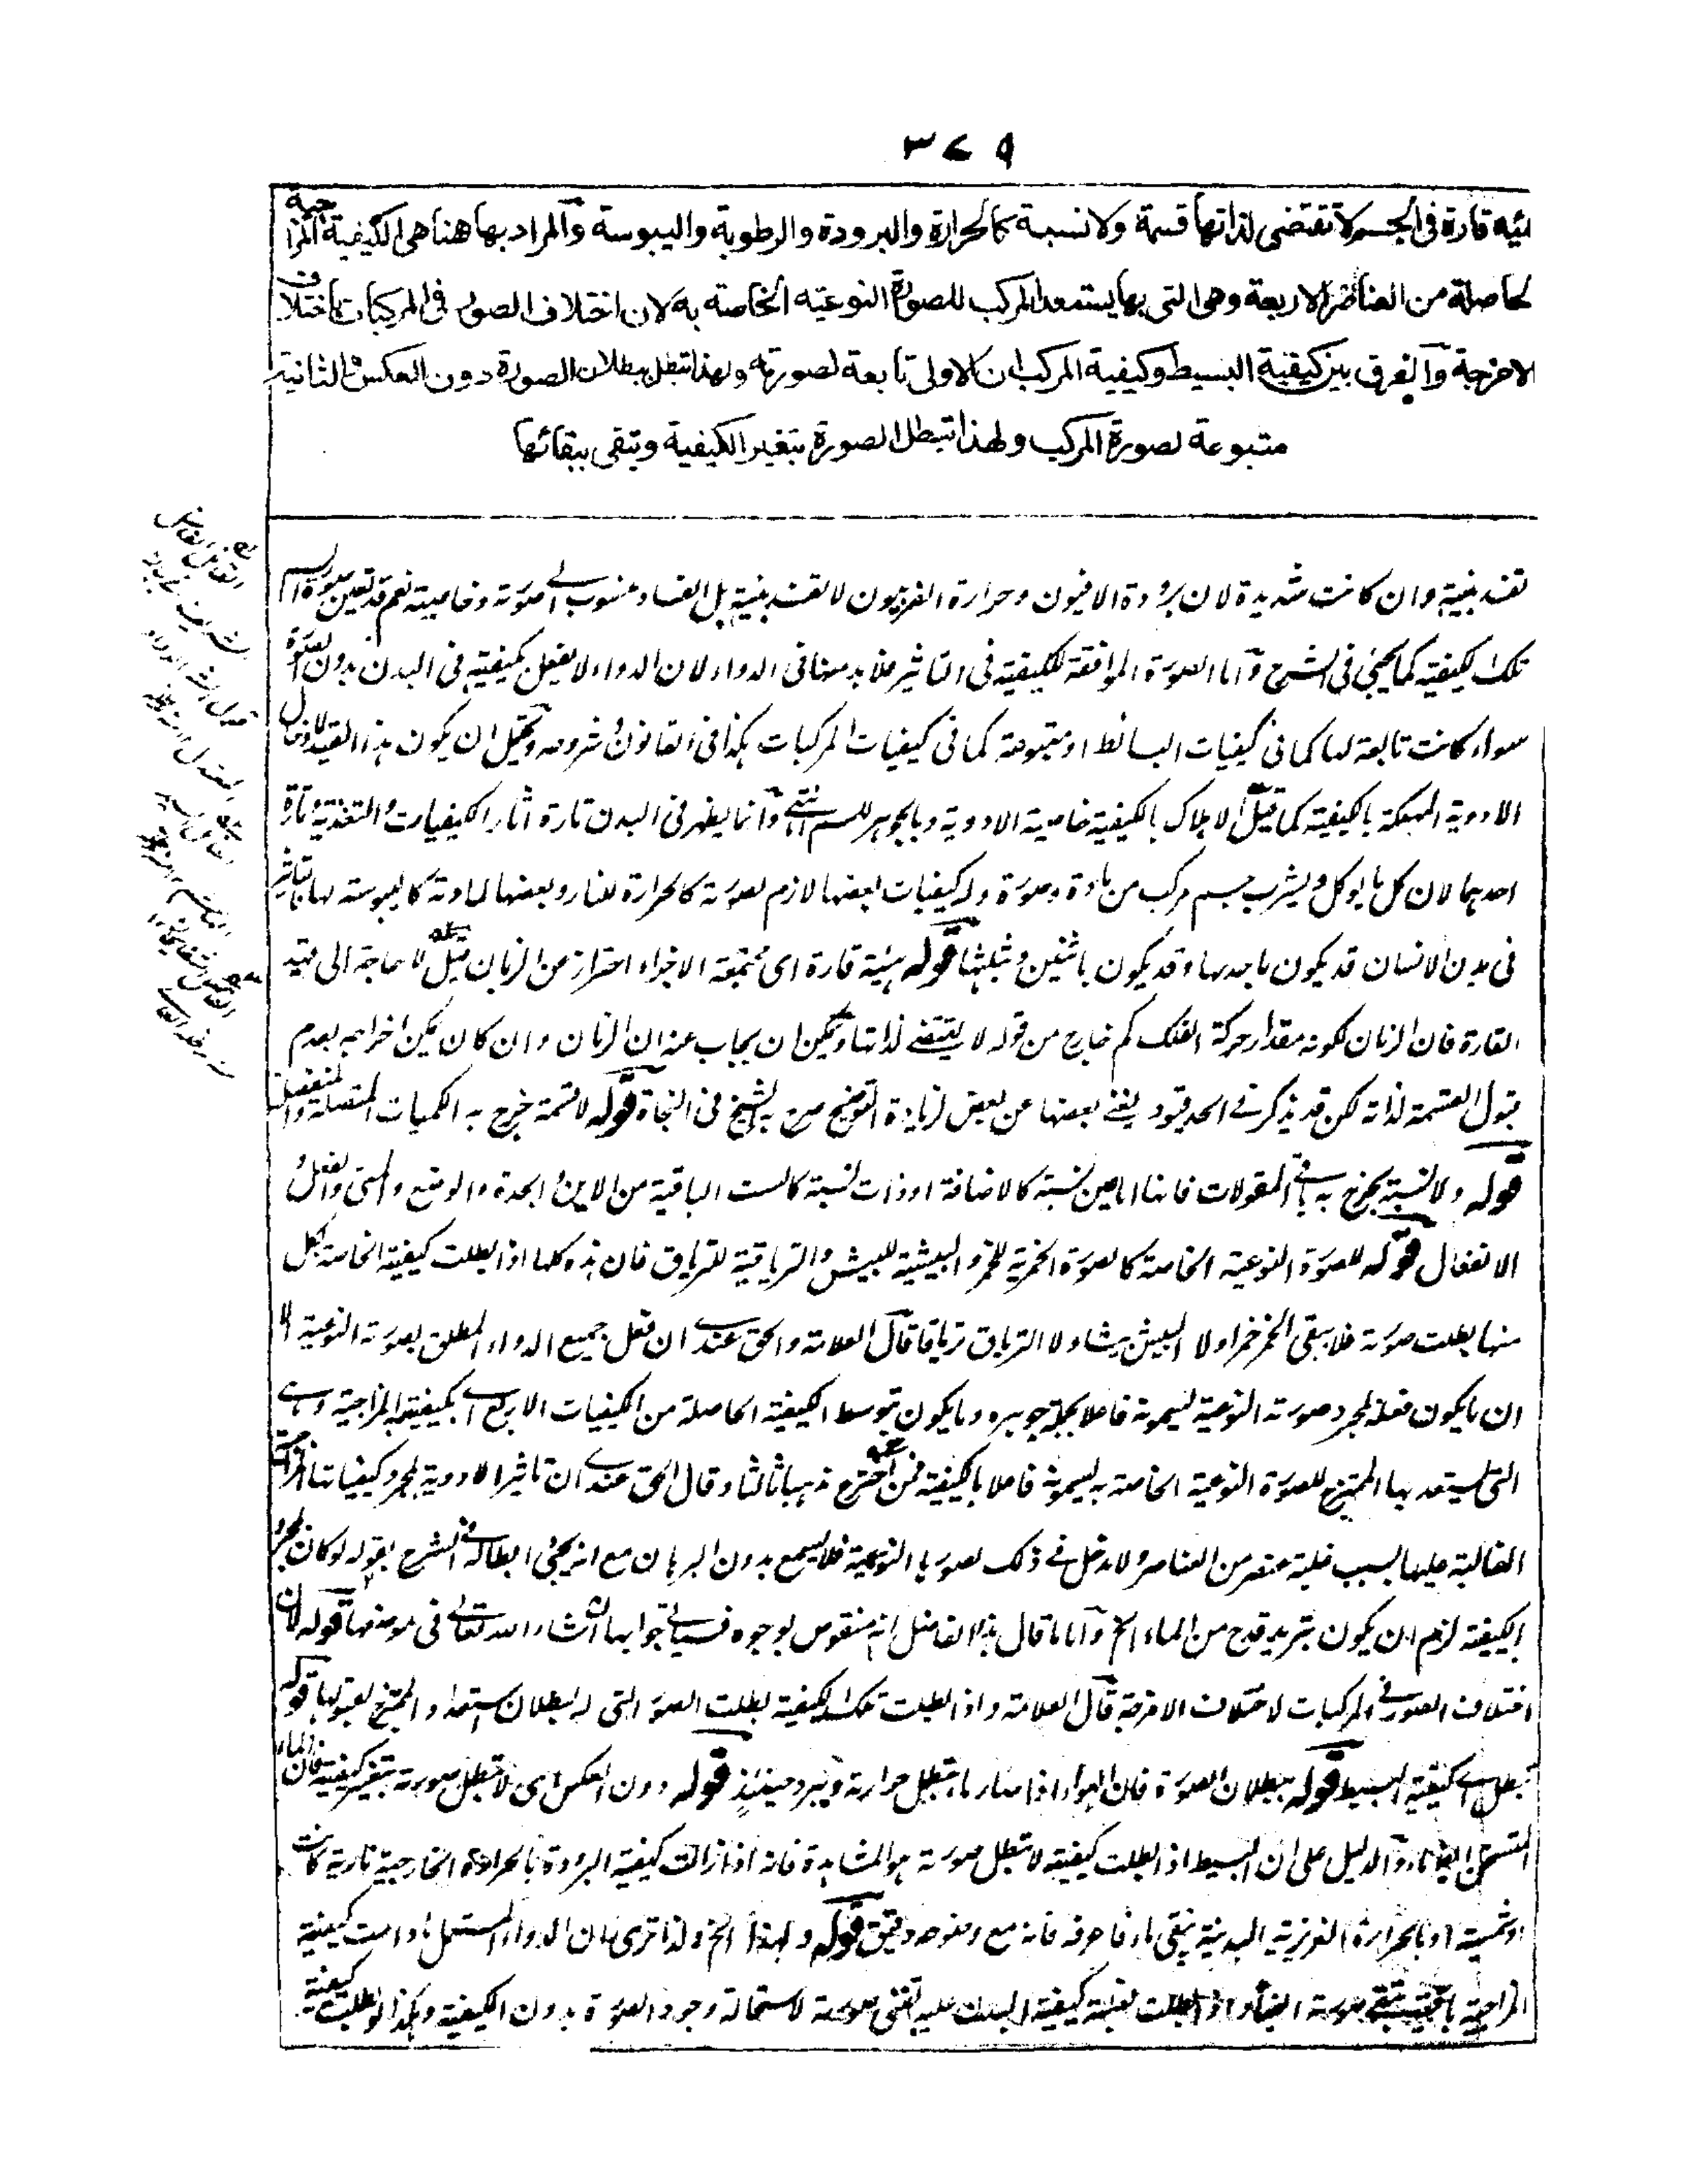 ٣٧٩
ئية قارة فى الجسم لا تقتضى لذاتها قسمة ولا نسبة كالحرارة والبرودة والرطوبة واليبوسة والمراد بها ههنا هى الكيفية المزاجية
لحاصلة من العناصر الاربعة وهى التى بها يستعد المركب للصورة النوعية الخاصة به لان اختلاف الصور فى المركبات باختلاف
الامزجة والفرق بين كيفية البسيط وكيفية المركب ان الاولى تابعة لصورته ولهذا تبطل ببطلان الصورة دون العكس والثانية
متبوعة لصورة المركب ولهذا تبطل الصورة بتغير الكيفية وتبقى ببقائها
تفسد بنيته وان كانت شديدة لان برودة الافيون وحرارة الفربيون لا تفسد بنيته بل الفساد منسوب الى صورته وخاصيته نعم قد تعين صورة السم
تلك الكيفية كما يجئ فى الشرح واما الصورة الموافقة للكيفية فى التاثير فلا بد منها فى الدواء لان الدواء لا يفعل بكيفيته فى البدن بدون الصورة
سواء كانت تابعة لها كما فى كيفيات البسائط او متبوعة كما فى كيفيات المركبات هكذا فى القانون وشروحه ويحتمل ان يكون هذا القيد لادخال
الادوية المهلكة بالكيفية كما قيل الاهلاك بالكيفية خاصية الادوية وبالجوهر للسم انتهى وانما يظهر فى البدن تارة اثار الكيفيات والتغذية وتارة
احدهما لان كل ما يوكل ويشرب جسم مركب من مادة وصورة وله كيفيات بعضها لازم لصورته كالحرارة للنار وبعضها لمادته كاليبوسة لها فتاثير
فى بدن الانسان قد يكون باحدها وقد يكون باثنين وبثلثها قوله هيئة قارة اى مجتمعة الاجزاء احتراز من الزمان قيل لا حاجة الى قيد
القارة فان الزمان لكونه مقدار حركة الفلك كم خارج من قوله لا يقتضى لذاتها ويمكن ان يجاب عنه ان الزمان وان كان يمكن اخراجه بعدم
قبول القسمة لذاته لكن قد يذكر فى الحد قيود يغنى بعضها عن بعض لزيادة التوضيح صرح به الشيخ فى النجاة قوله لا قسمة خرج به الكميات المتصلة والمنفصلة
قوله ولا نسبة يخرج به باقى المقولات فانها اما عين نسبة كالاضافة او ذات نسبة كالست الباقية من الاين والجدة والوضع والمتى والفعل و
الانفعال قوله للصورة النوعية الخاصة كالصورة الخمرية للخمر والبيشية للبيش والترياقية للترياق فان هذه كلها اذا بطلت كيفية الخاصة بكل
منها بطلت صورته فلا يبقى الخمر خمرا ولا البيش بيشا ولا الترياق ترياقا قال العلامة والحق عندى ان فعل جميع الدواء المطلق بصورته النوعية الا
ان ما يكون فعله لمجرد صورته النوعية ليسمونه فاعلا بجملة جوهره وما يكون بتوسط الكيفية الحاصلة من الكيفيات الاربع اى بكيفيته المزاجية وهى
التى يستعد بها الممتزج للصورة النوعية الخاصة به يسمونه فاعلا بالكيفية فمن اخترع مذهبا ثالثا وقال الحق عندى ان تاثير الادوية لمجرد كيفياتها المزاجية
الغالبة عليها بسبب غلبة عنصر من العناصر ولا دخل فى ذلك لصورها النوعية فلا يسمع بدون البرهان مع انه يجئ ابطاله فى الشرح بقوله لو كان بمجرد
الكيفية لزم ان يكون تبريد قدح من الماء الخ واما ما قال هذا الفاضل انه منقوض بوجوه فسياتى جوابها ان شاء الله تعالى فى موضعها قوله لان
اختلاف الصور فى المركبات لاختلاف الامزجة قال العلامة واذا بطلت تلك الكيفية بطلت الصورة التى له لبطلان استعداد الممتزج لقبولها قوله
تبطل اى كيفية البسيط قوله ببطلان الصورة فان الهواء اذا صار ماء تبطل حرارته ويبرد حينئذ قوله دون العكس اى لا تبطل صورته بتغير كيفيته فان الماء
المتسخن ايضا ماء والدليل على ان البسيط اذا بطلت كيفيته لا تبطل صورته هو المشاهدة فانه اذا زالت كيفية البرودة بالحرارة الخارجية نارية كانت
او شمسية او بالحرارة الغريزية البدنية يبقى ماء فاعرفه فانه مع وضوحه دقيق قوله ولهذا الخ ولذا ترى ان الدواء المستعمل ما دامت كيفيته
المزاجية باقية تبقى صورته ايضا واذا بطلت بغلبة كيفية البدن عليه تفنى صورته لاستحالة وجود الصورة بدون الكيفية وهكذا لو بطلت كيفية